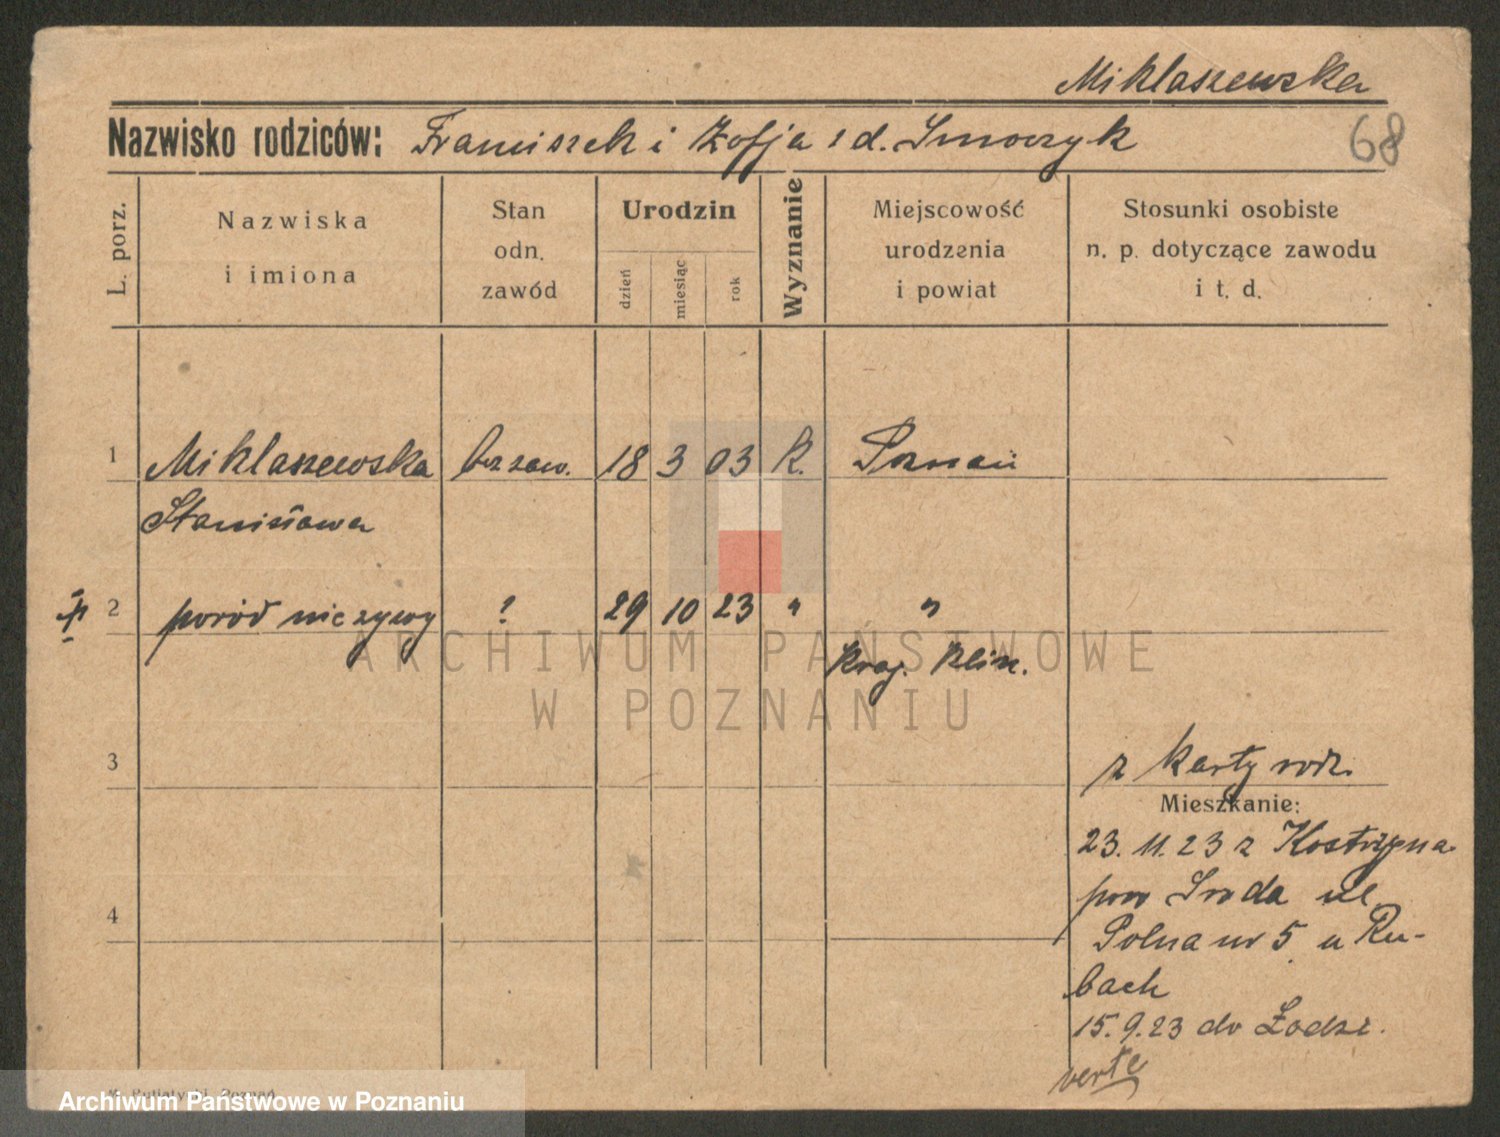 Miklaszewska
Nazwisko rodziców: Franciszek i Zofja z d. Smoczyk
68
L. porz.
Nazwiska
i imiona
Stan
odn.
zawód
Urodzin
dzień
miesiąc
rok
Wyznanie
Miejscowość
urodzenia
i powiat
Stosunki osobiste
n. p. dotyczące zawodu
i t. d.
1 Miklaszewska bez zaw. 18 3 03 k. Poznań
Stanisława
2 poród nieżywy ? 29 10 23 " "
Kraj. Klin.
3
z karty rodz.
Mieszkanie:
23. 11. 23 z Kostrzyna
pow Sroda ul.
4
Polna nr 5 u Ru-
bach
15. 9. 23 do Łodzi.
verte
Poznań
ARCHIWUM PAŃSTWOWE
W POZNANIU
Archiwum Państwowe w Poznaniu